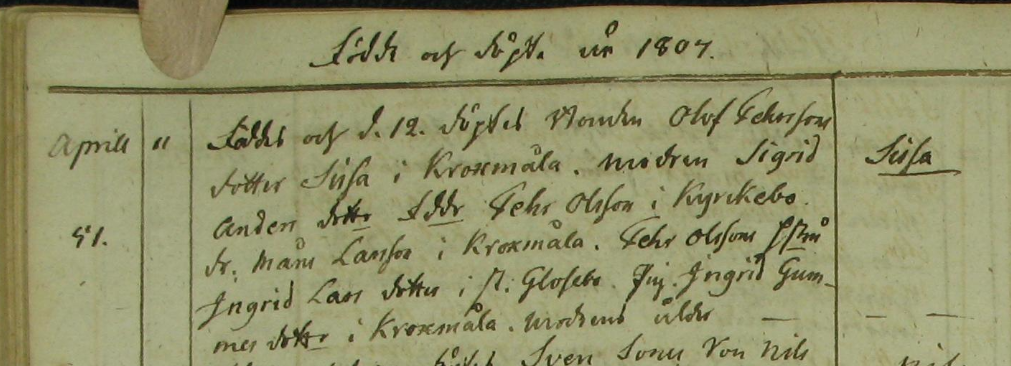 Födde och döpte år 1807.
Aprill 11 Föddes och d. 12. döptes Bonden Olof Fehrssons
dotter Sissa i Kroxmåla. modren Sigrid Sissa
Anders dotter Fddr Fehr Olsson i Kyrckebo.
51. dr. Måns Larsson i Kroxmåla. Fehr Olssons Hstru
Ingrid Lars dotter i St. Glosebo. Pig. Ingrid Gum-
mes dotter i Kroxmåla. modrens ålder — — —
döptes Sven Sonus Bon Nils